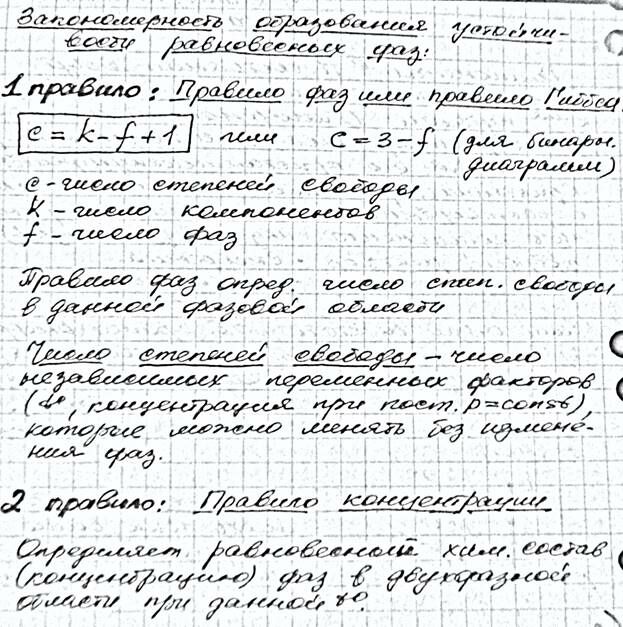 Закономерность образования устойчи-
вости равновесных фаз:
1 правило: Правило фаз или правило Гиббса
c = k - f + 1 или c = 3 - f (для бинарн.
диаграмм)
c - число степеней свободы
k - число компонентов
f - число фаз
Правило фаз опред. число степ. свободы
в данной фазовой области
Число степеней свободы - число
независимых переменных факторов
(t°, концентрация при пост. p=const),
которые можно менять без измене-
ния фаз.
2 правило: Правило концентрации
Определяет равновесный хим. состав
(концентрацию) фаз в двухфазной
области при данной t°.